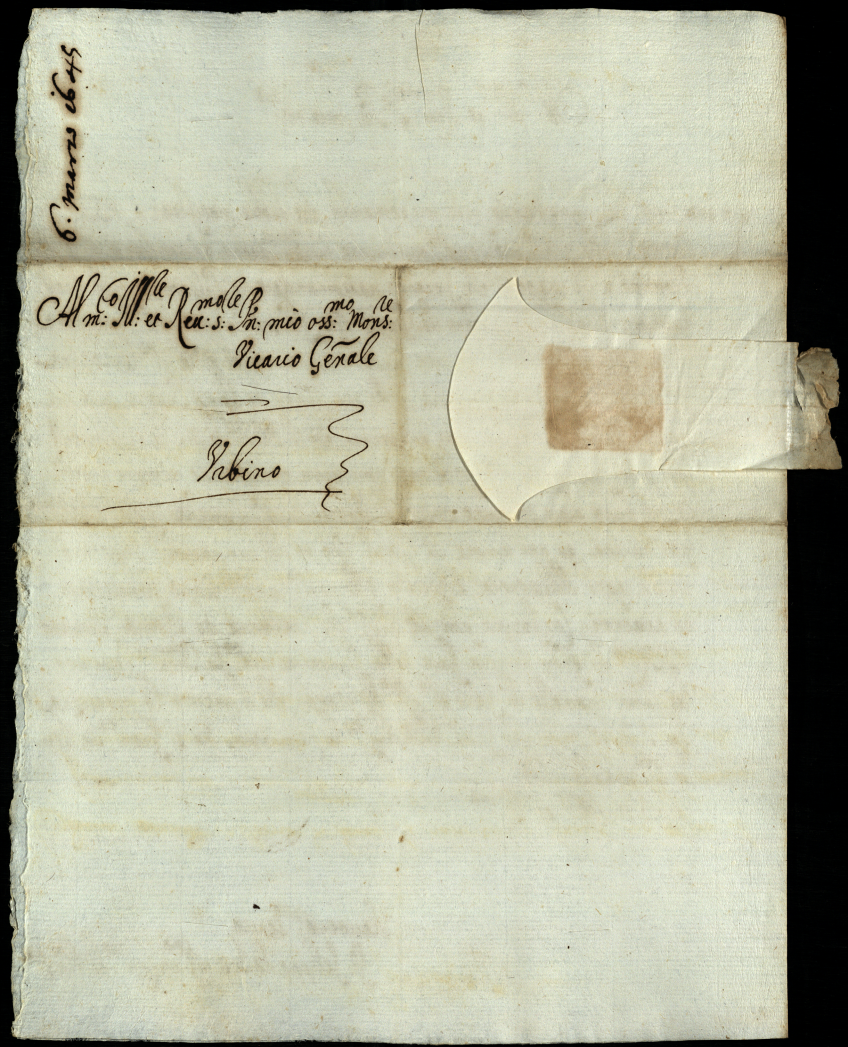 6. marzo 1645
Al m:co Ill:le et Reu:mo s:le Pn: mio oss:mo Mons:re
Vicario Gen̄ale
Vrbino